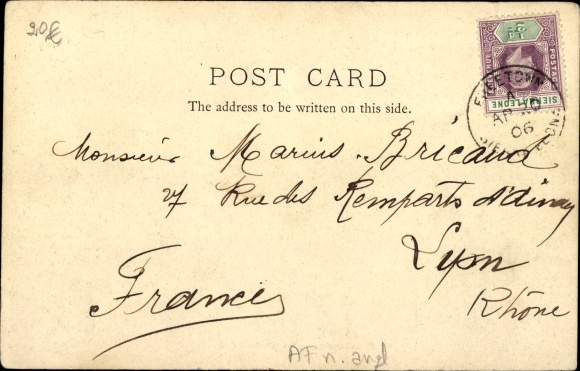 2,0€
POST CARD
The address to be written on this side.
POSTAGE
SIERRA LEONE
FREETOWN
A
AP 10
06
SIERRA LEONE
Monsieur Marius Bricaud
27 Rue des Remparts d'Ainay
Lyon
Rhône
France
AF n. angl